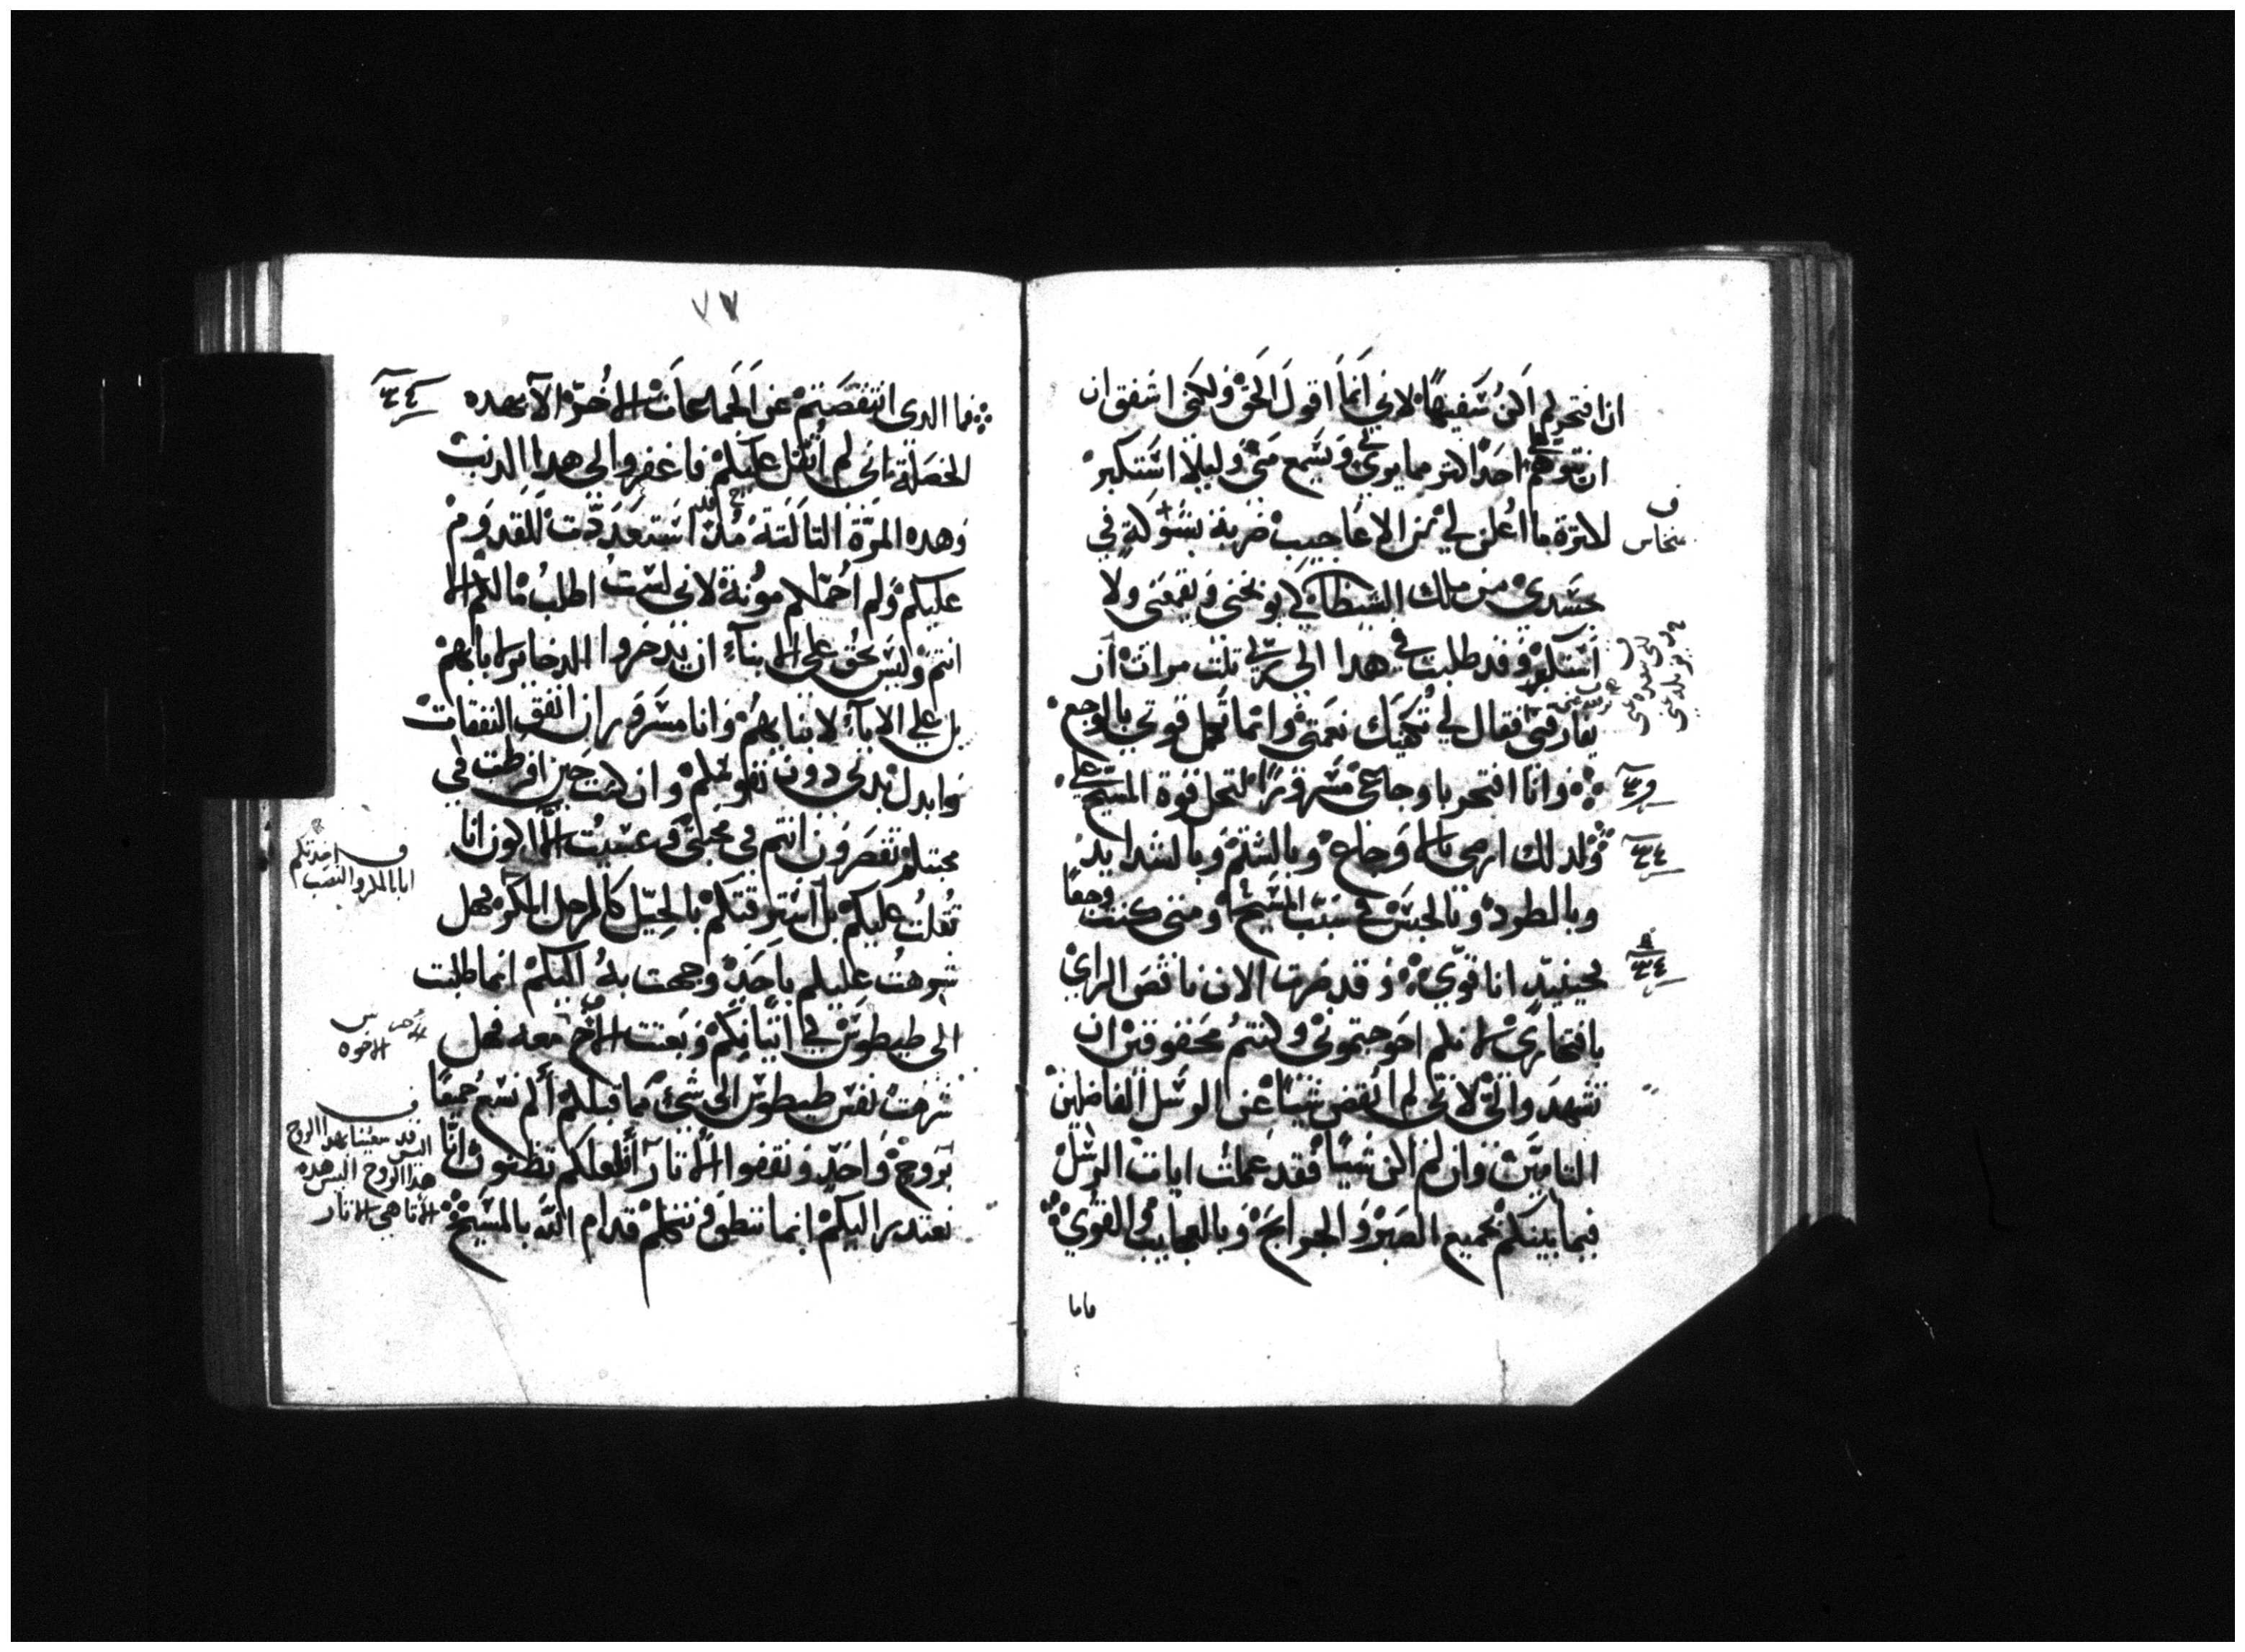 انا فتخر لم اكن سفيها لاني انما اقول الحق ولكني اشفق ان
ان يتوهم احد اكتر مما يرى في ويسمع مني وليلا استكبر
لكترة ما اعلن لي من الاعاجيب ضربة بشوكة في
جسدي من ملك الشيطان لي يوبخني ويقمعني ولا
استكبر وقد طلبت في هدا الى ربي تلت مرات ان
يفارقني فقال لي تكفيك نعمتي وانما تكمل قوتي بالوجع
وانا افتخر باوجاعي مسرورا لتحل قوة المسيح علي
ولدلك ارضى بالاوجاع وبالشتم وبالشدايد
وبالطرد وبالحبس في سبب المسيح ومتى كنت وجعا
فحينيد انا قوي وقد صرت الان ناقص الراي
بافتخاري لانكم احوجتموني وكنتم محقوقين ان
تشهدوا لي لاني لم انقص شيا عن الرسل الفاضلين
التامين وان لم اكن شيا فقد عملت ايات الرسل
فيما بينكم بجميع الصبر والجرايح وبالعجايب القوي
فاما
ف
٧٧
فما الدي انتقصتم عن الجماعات الاخر الا بهده
الخصلة اني لم اتقل عليكم فاغفروا لي هدا الدنب
وهده المرة التالتة مند استعددت للقدوم
عليكم ولم احملكم مونة لاني لست اطلب مالكم الا
انتم وليس يحق على الابنآء ان يدخروا الدخاير لابايهم
بل على الابآء لابنايهم وانا مسرور ان انفق النفقات
وابدل بدني دون نفوسكم وان كنت حين افرطت في
محبتكم تقصرون انتم في محبتي وعسيت الا اكون انا
تقلت عليكم بل استرقتكم بالحيل كالرجل المكر فهل
شرهت عليكم باحد وجهت به اليكم انما طلبت
الى طيطوس في اتيانكم وبعتت الاخ معه فهل
شرهت نفس طيطوس الى شي مما قبلكم الم نسع جميعا
بروح واحد ونقفوا الاتار افلعلكم تظنون انا
نعتدر اليكم انما ننطق نحكم قدام الله بالمسيح
الاخوه
ف
اليس قد سعينا بهدا الروح
هدا الروح اليس هده
الاتار هي الاتار